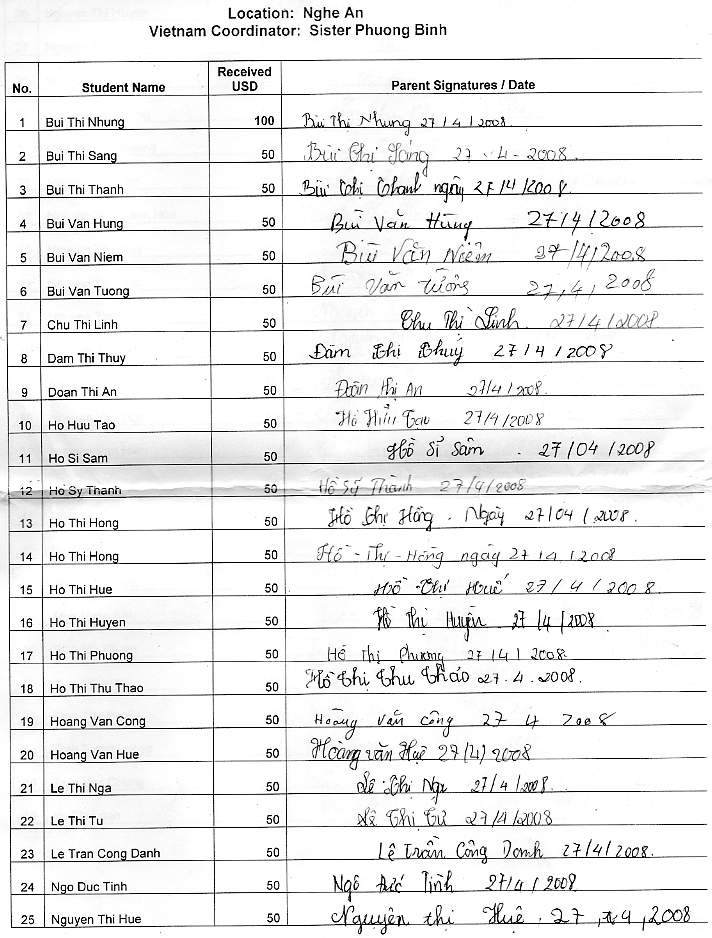 Location: Nghe An
Vietnam Coordinator: Sister Phuong Binh
No. Student Name Received USD Parent Signatures / Date
1 Bui Thi Nhung 100 Bùi Thị Nhung 27/4/2008.
2 Bui Thi Sang 50 Bùi Thị Sáng 27-4-2008.
3 Bui Thi Thanh 50 Bùi Thị Thanh ngày 27/4/2008
4 Bui Van Hung 50 Bùi Văn Hùng 27/4/2008
5 Bui Van Niem 50 Bùi Văn Niêm 27/4/2008
6 Bui Van Tuong 50 Bùi Văn Tường 27,4,2008
7 Chu Thi Linh 50 Chu Thị Linh 27/4/2008
8 Dam Thi Thuy 50 Đàm Thị Thuỷ 27/4/2008
9 Doan Thi An 50 Đoàn thị An 27/4/2008.
10 Ho Huu Tao 50 Hồ Hữu Tạo 27/4/2008
11 Ho Si Sam 50 Hồ Sĩ Sâm . 27/04/2008
12 Ho Sy Thanh 50 Hồ Sỹ Thành 27/4/2008
13 Ho Thi Hong 50 Hồ Thị Hồng . Ngày 27/04/2008.
14 Ho Thi Hong 50 Hồ-Thị-Hồng ngày 27/4/2008
15 Ho Thi Hue 50 Hồ Thị Huế 27/4/2008.
16 Ho Thi Huyen 50 Hồ Thị Huyền 27/4/2008
17 Ho Thi Phuong 50 Hồ Thị Phương 27/4/2008.
18 Ho Thi Thu Thao 50 Hồ Thị Thu Thảo 27.4.2008.
19 Hoang Van Cong 50 Hoàng Văn Công 27 4 2008
20 Hoang Van Hue 50 Hoàng văn Huệ 27(4)2008
21 Le Thi Nga 50 Lê Thị Nga 27/4/2008
22 Le Thi Tu 50 Lê Thị Tư 27/4/2008
23 Le Tran Cong Danh 50 Lê Trần Công Danh 27/4/2008.
24 Ngo Duc Tinh 50 Ngô Đức Tình 27/4/2008
25 Nguyen Thi Hue 50 Nguyễn thị Huê. 27, 4,2008